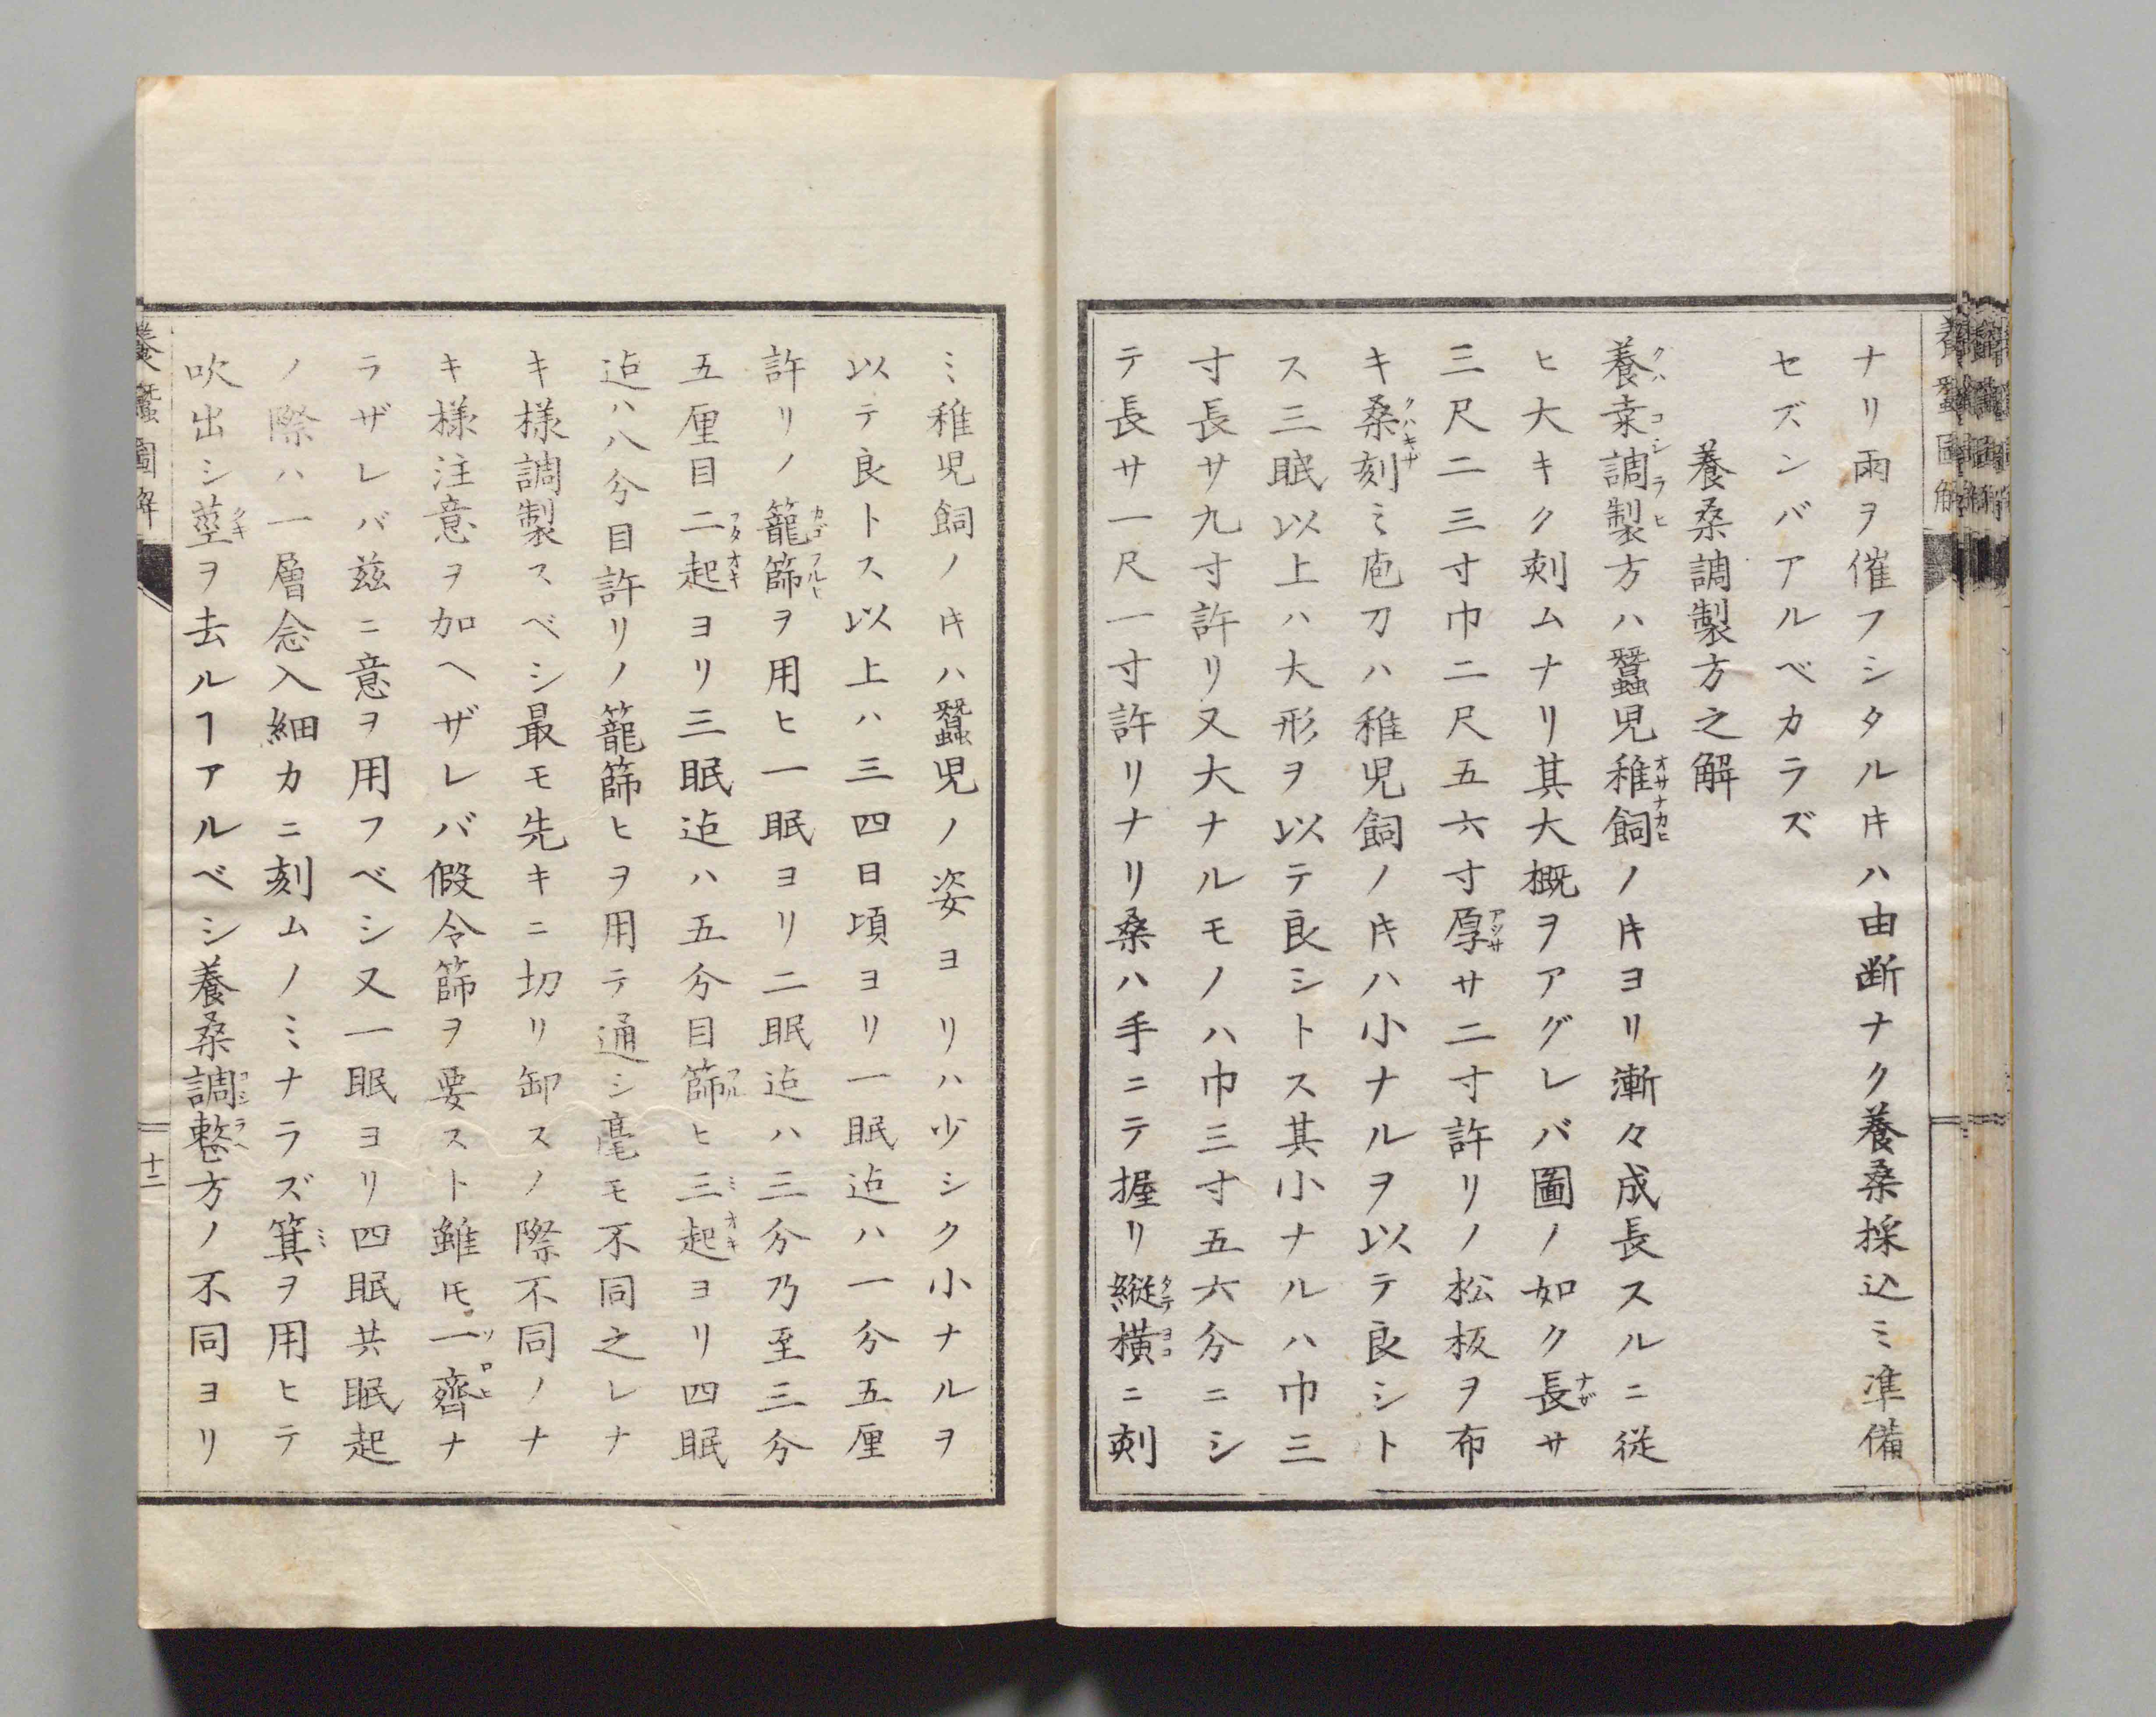 養蚕圖解
ナリ雨ヲ催フシタルキハ由断ナク養桑採込ミ準備
セズンバアルベカラズ
養桑調製方之解
養桒調製方ハ蠶児稚飼ノキヨリ漸々成長スルニ従
クハ コシラヒ オサナカヒ
ヒ大キク刻ムナリ其大概ヲアグレバ圖ノ如ク長サ
ナガ
三尺二三寸巾二尺五六寸厚サ二寸許リノ松板ヲ布
アツサ
キ桑刻ミ庖刀ハ稚児飼ノキハ小ナルヲ以テ良シト
クハキザ
ス三眠以上ハ大形ヲ以テ良シトス其小ナルハ巾三
寸長サ九寸許リ又大ナルモノハ巾三寸五六分ニシ
テ長サ一尺一寸許リナリ桑ハ手ニテ握リ縦横ニ刻
タテヨコ
ミ稚児飼ノキハ蠶児ノ姿ヨリハ少シク小ナルヲ
以テ良トス以上ハ三四日頃ヨリ一眠迠ハ一分五厘
許リノ籠篩ヲ用ヒ一眠ヨリ二眠迠ハ三分乃至三分
カゴフルヒ
五厘目二起ヨリ三眠迠ハ五分目篩ヒ三起ヨリ四眠
フタオキ フル ミオキ
迠ハ八分目許リノ籠篩ヒヲ用テ通シ毫モ不同之レナ
キ様調製スベシ最モ先キニ切リ卸スノ際不同ノナ
キ様注意ヲ加ヘザレバ假令篩ヲ要スト雖𪜈一齊ナ
ソロヒ
ラザレバ茲ニ意ヲ用フベシ又一眠ヨリ四眠共眠起
ノ際ハ一層念入細カニ刻ムノミナラズ箕ヲ用ヒテ
ミ
吹出シ莖ヲ去ルヿアルベシ養桑調整方ノ不同ヨリ
クキ コシラヘ
養蠶圖解
十二